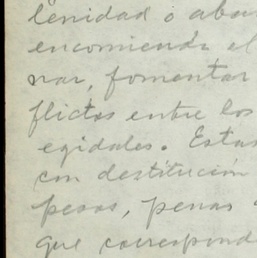 lenidad o aba
encomienda el
nar, fomentar
flictos entre los
egidales. Estas
con destitución
pesos, penas
que correspond